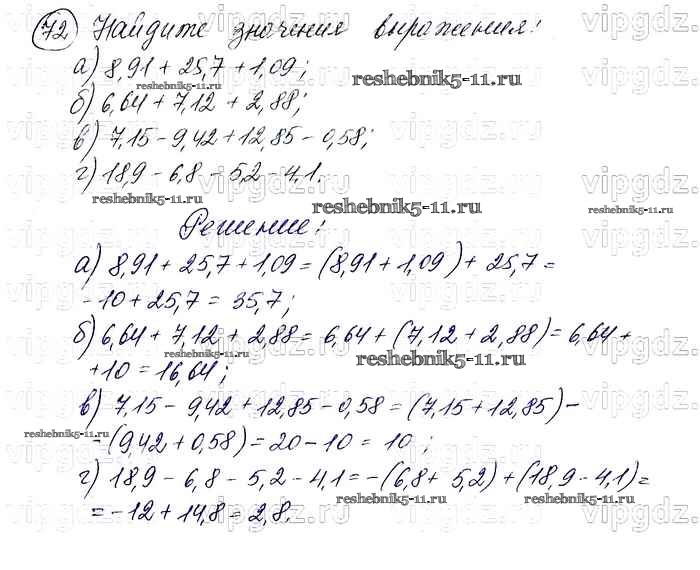 72 Найдите значения выражения:
а) 8,91 + 25,7 + 1,09;
б) 6,64 + 7,12 + 2,88;
в) 7,15 - 9,42 + 12,85 - 0,58;
г) 18,9 - 6,8 - 5,2 - 4,1.
Решение:
а) 8,91 + 25,7 + 1,09 = (8,91 + 1,09) + 25,7 =
- 10 + 25,7 = 35,7;
б) 6,64 + 7,12 + 2,88 = 6,64 + (7,12 + 2,88) = 6,64 +
+ 10 = 16,64;
в) 7,15 - 9,42 + 12,85 - 0,58 = (7,15 + 12,85) -
- (9,42 + 0,58) = 20 - 10 = 10;
г) 18,9 - 6,8 - 5,2 - 4,1 = -(6,8 + 5,2) + (18,9 - 4,1) =
= -12 + 14,8 = 2,8.
vipgdz.ru
reshebnik5-11.ru